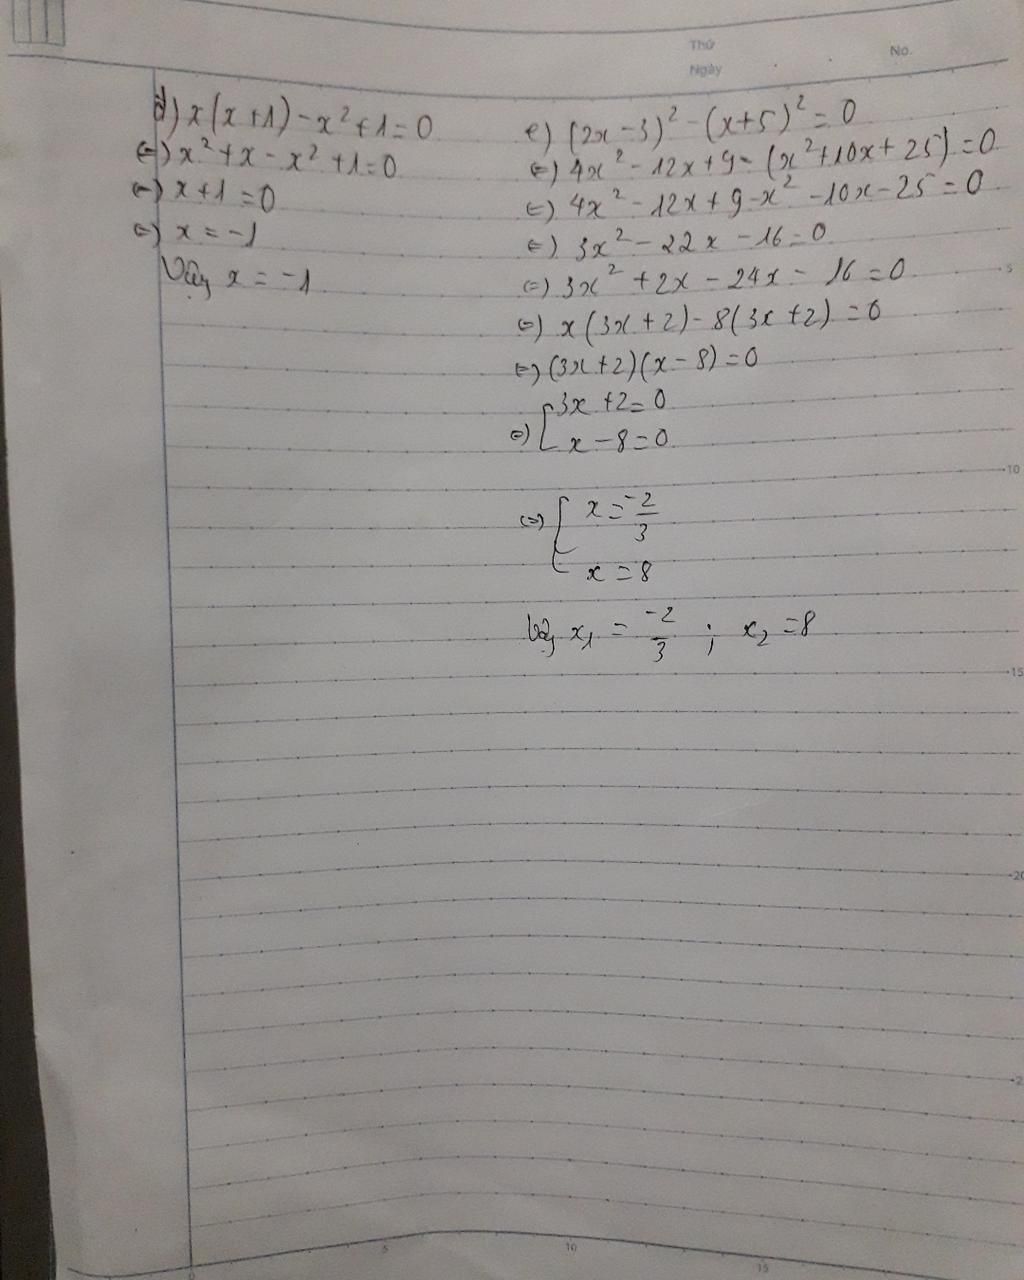 Thứ
Ngày
No.
d) x(x+1) - x² + 1 = 0
(=) x² + x - x² + 1 = 0
(=) x + 1 = 0
(=) x = -1
Vậy x = -1
e) (2x - 3)² - (x+5)² = 0
(=) 4x² - 12x + 9 - (x² + 10x + 25) = 0
(=) 4x² - 12x + 9 - x² - 10x - 25 = 0
(=) 3x² - 22x - 16 = 0
(=) 3x² + 2x - 24x - 16 = 0
(=) x(3x + 2) - 8(3x + 2) = 0
(=) (3x + 2)(x - 8) = 0
(=) [ 3x + 2 = 0
x - 8 = 0
(=) [ x = -2/3
x = 8
Vậy x₁ = -2/3 ; x₂ = 8
5
10
15
20
2
5
10
15